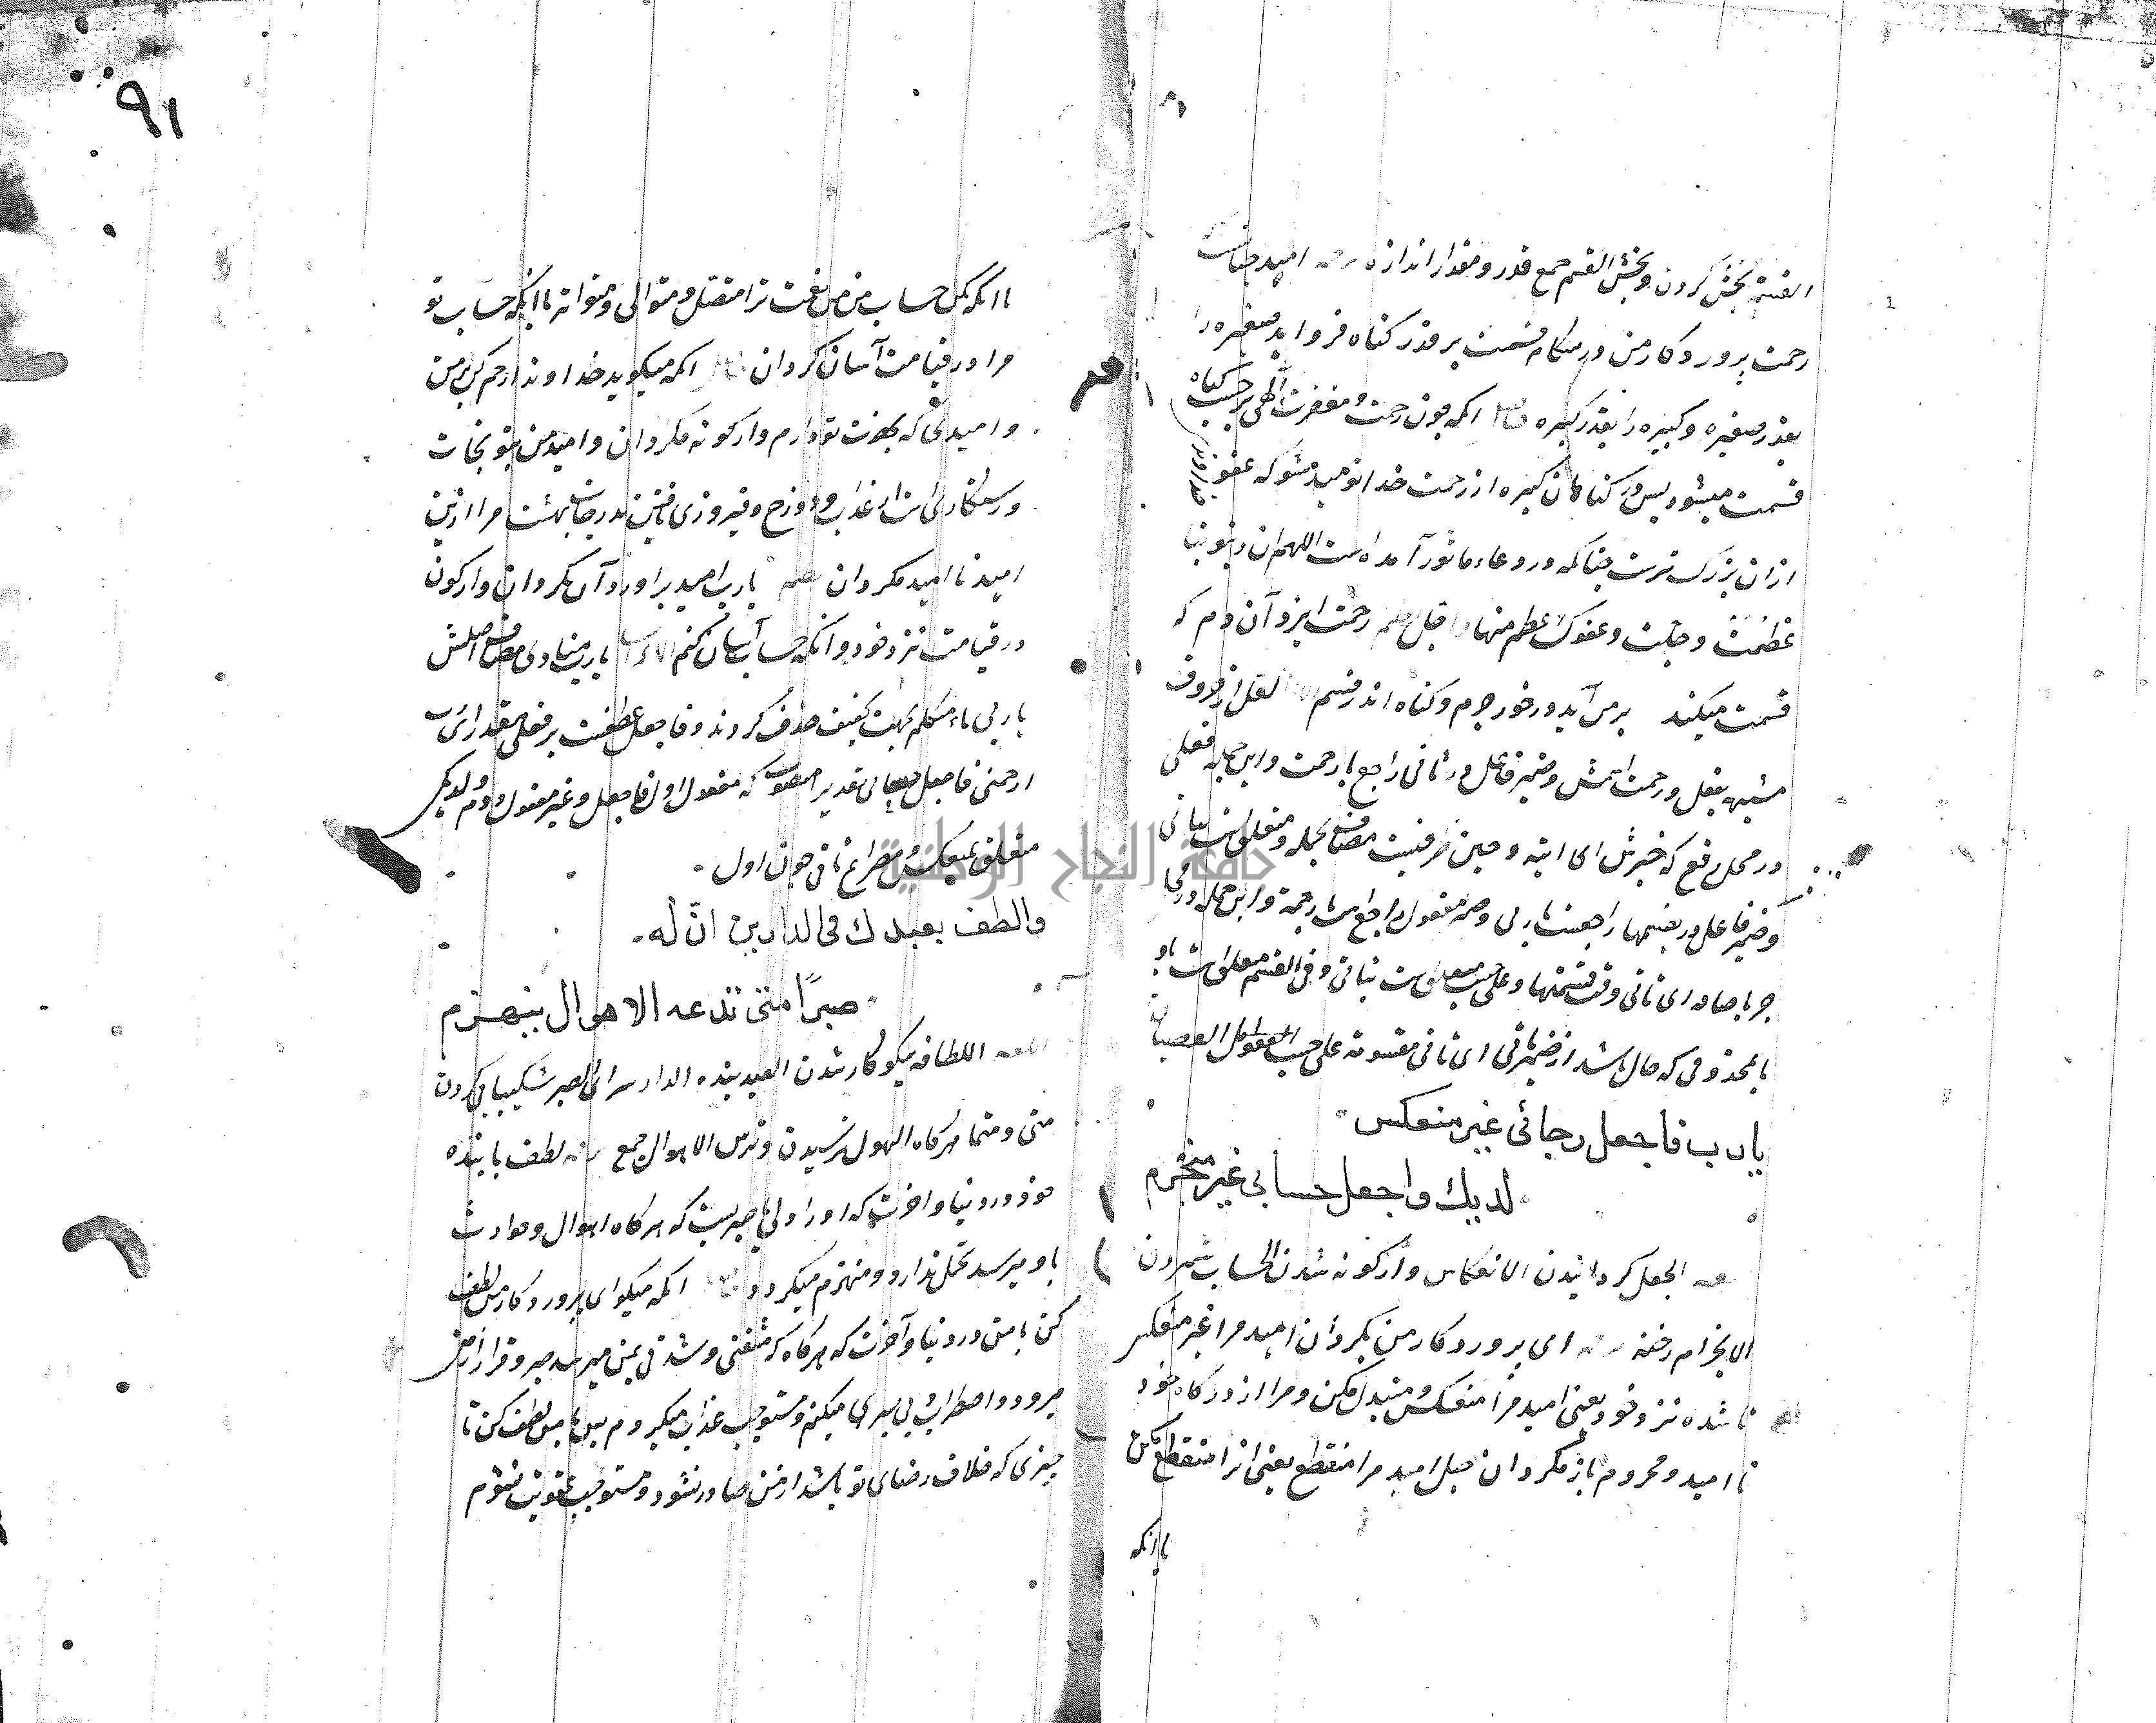 القسمة بخش کردن و بخش القسم جمع قدر و مقدار اندازه امید چنانست
رحمت پروردکار من در هنکام قسمت بر قدر کناه فرو آید صغیره را
بقدر صغیره و کبیره را بقدر کبیره انکه چون رحمت و مغفرت الهی بر حسب کناه
قسمت میشود پس در کناهان کبیره از رحمت خدا نومید مشو که عفو خداوند
ازان بزرک ترست چنانکه در دعاء ماثور آمده است اللهم ان ذنوبنا
عظمت و جلت و عفوک اعظم منها رحمت ایزد آن دم که
قسمت میکند بر من آید در خور جرم و کناه اندر قسم لعل از حروف
مشبهه بفعل و رحمت اسمش و ضمیر فاعل در تاتی راجع با رحمت و این جمله فعلی
در محل رفع که خبرش ای اتیه و حین ظرفیست مضاف بجمله و متعلق است بتاتی
و ضمیر فاعل در یقسمها راجعست با ربی و ضمیر مفعول راجع است با رحمة و این جمله در محل
جر باضافه ای تاتی وقت قسمتها و علی حسب متعلق است بتاتی و فی القسم متعلق است باو
یا بمحذوفی که حال باشد از ضمیر تاتی ای تاتی مقسومة علی حسب العصیان
يا رب فاجعل رجائي غير منعكس
لديك واجعل حسابي غير منخرم
الجعل کردانیدن الانعکاس واژکونه شدن الحساب شمردن
الانخرام رخنه ای پروردکار من بکردان امید مرا غیر منعکس
ناشده نزد خود یعنی امید مرا منعکس و متبدل مکن و مرا از درکاه خود
نا امید و محروم باز مکردان حبل امید مرا منقطع یعنی انرا منقطع مکن
با انکه
٩١
با انکه مکن حساب من نعمت ترا متصل و متوالی و متواتر با انکه حساب تو
مرا در قیامت آسان کردان انکه میکوید خداوندا رحم کن بر من
و امیدی که بحضرت تو دارم واژکونه مکردان و امید من بتو نجات
و رستکاری است از عذاب دوزخ و فیروزی یافتن بدرجات بهشت مرا ازین
امید نا امید مکردان یا رب امید برآور و آن مکردان واژکون
در قیامت نزد خود و انکه حساب آسان کنم یا رب منادی مضاف اصلش
یا ربی یاء متکلم بجهت تخفیف حذف کردند و فاجعل عطفست بر فعلی مقدر ای رب
ارحمنی فاجعل رجائی تقدیرا منصوب که مفعول اول فاجعل و غیر مفعول دوم و لدیک
متعلق بمنعکس و مصراع ثانی چون اول
والطف بعبدك في الدارين ان له
صبرا متى تدعه الاهوال ينهزم
اللطافه نیکوکار شدن العبد بنده الدار سرای الصبر شکیبایی کردن
متی و متیما هرکاه الهول ترسیدن و ترس الاهوال جمع لطف با بنده
خود در دنیا و اخرت که او را ولی صبریست که هرکاه اهوال و حوادث
باو میرسد تحمل ندارد و منهزم میکردد انکه میکوید ای پروردکار من لطف
کن با من در دنیا و آخرت که هرکاه که مشقتی و شدتی بمن میرسد صبر و قرار از من
میرود و اضطراب و بی صبری میکنم و مستوجب عذاب میکردم پس با من لطف کن تا
چیزی که خلاف رضای تو باشد از من صادر نشود و مستوجب عقوبت نشوم
جامعة النجاح الوطنية